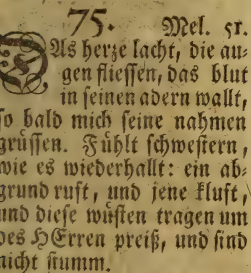 75. Mel. 51.
DAs herze lacht, die au-
gen fliessen, das blut
in seinen adern wallt,
so bald mich seine nahmen
grüssen. Fühlt schwestern,
wie es wiederhallt: ein ab-
grund ruft, und jene kluft,
und diese wüsten tragen um
des HErren preiß, und sind
nicht stumm.